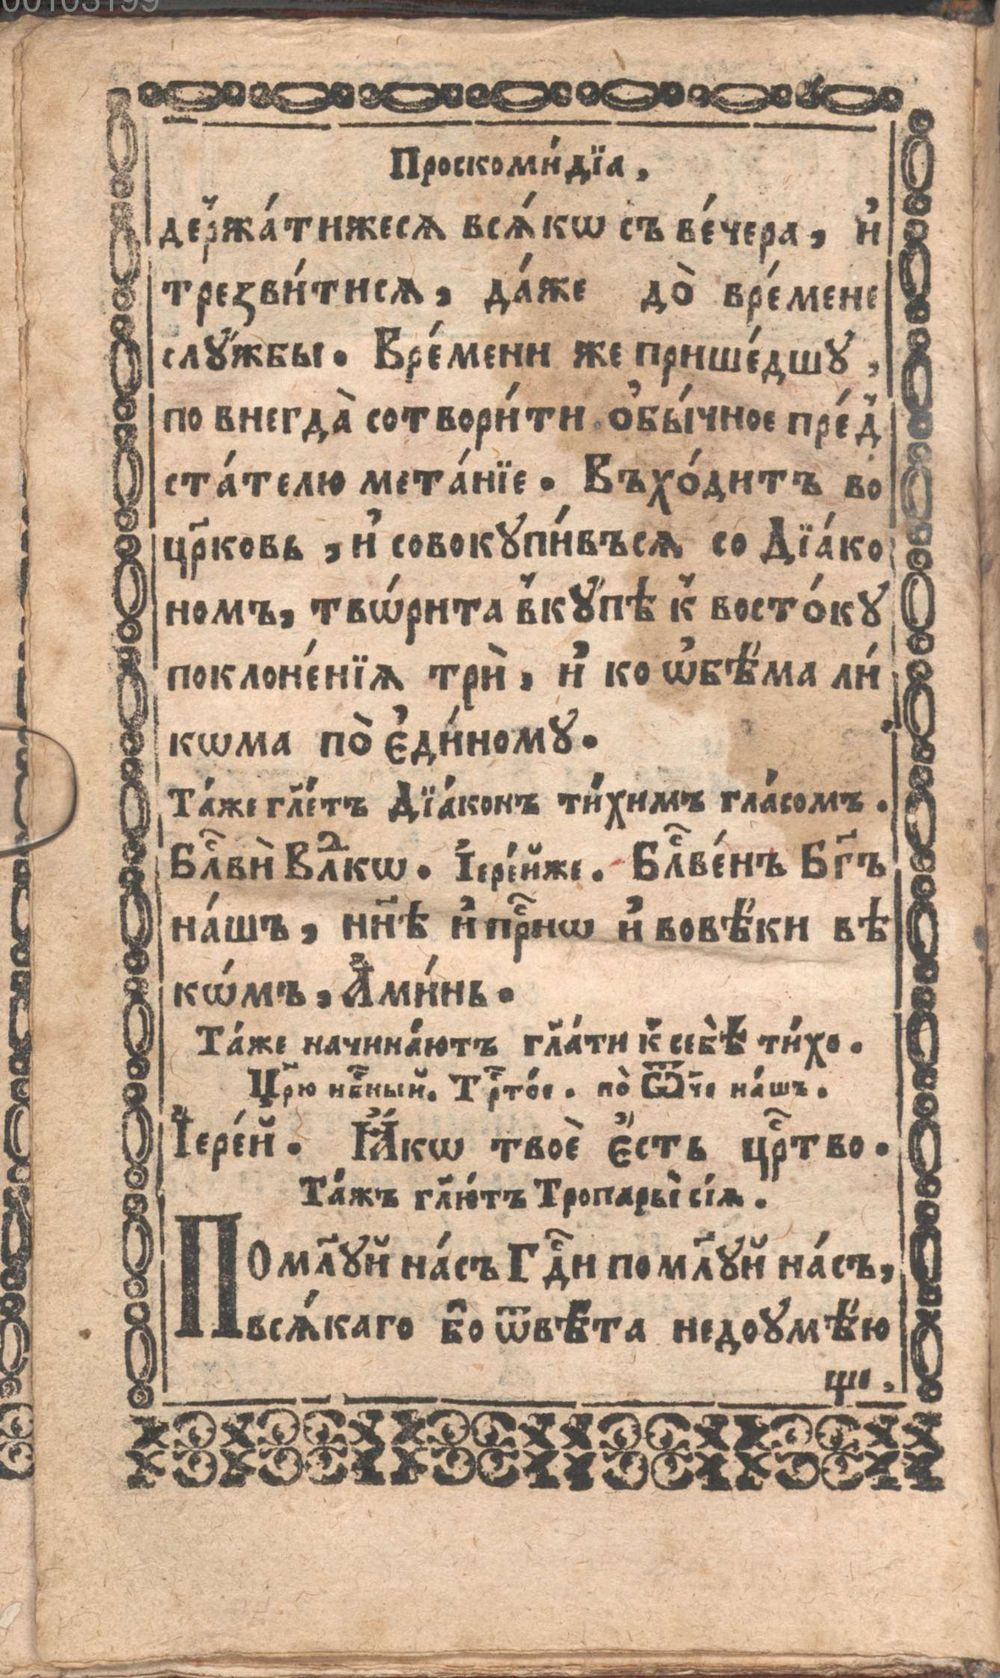 Проскоми́дїа,
дер҆жа́тижесѧ всѧ́кѡ съ ве́чера, и҆
трезви́тисѧ, да́же до̀ вре́мене
слꙋ́жбы. Вре́мени же прише́дшꙋ,
по внегда̀ сотвори́ти ѻ҆бы́чное пре́д҆
ста́телю мета́нїе. Въхо́дитъ во
цр҃ковь, и҆ совокꙋпи́въсѧ со Дїа́ко
номъ, твѡ́рита в҆кꙋ́пѣ к҆ восто́кꙋ
поклоне́нїѧ трѝ, и҆ ко ѡ҆бѣ́ма ли́
кѡма по̀ є҆ди́номꙋ.
Та́же гл҃етъ Дїа́конъ ти́химъ гла́сомъ.
Бл҃вѝ Влⷣкѡ. І҆ере́йже. Бл҃ве́нъ Бг҃ъ
на́шъ, нн҃ѣ и҆ прⷭ҇нѡ и҆ вовѣ́ки вѣ
кѡ́мъ, А҆ми́нь.
Та́же начина́ютъ гл҃ати к҆ себѣ̀ ти́хо.
Цр҃ю нбⷭ҇ный. Трⷭ҇то́е. по̀ Ѿч҃е на́шъ.
І҆ере́й. Ꙗ҆́кѡ твоѐ є҆́сть црⷭ҇тво.
Та́жъ гл҃ютъ Тропары̀ сїѧ̀.
Помл҃ꙋй на́съ Гдⷭ҇и помл҃ꙋй на́съ,
всѧ́каго бо ѿвѣ́та недоꙋмѣ́ю
ще,
00103199